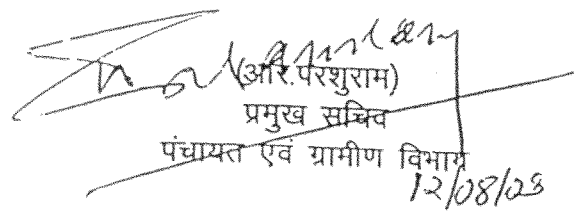 (आर.परशुराम)
प्रमुख सचिव
पंचायत एवं ग्रामीण विभाग
12/08/08